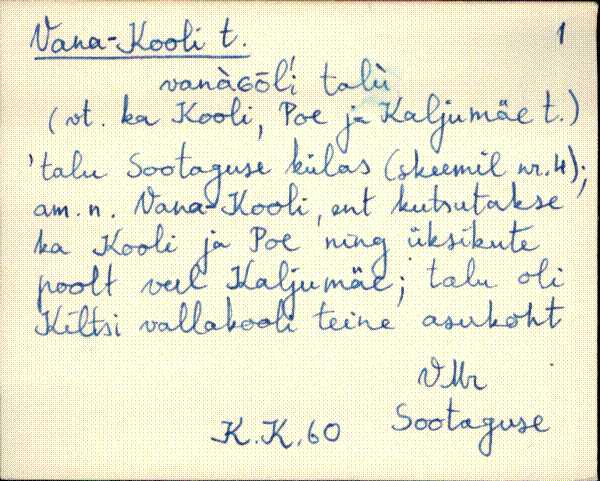 Vana-Kooli t. 1
vanàGōl̀i talù
(vt. ka Kooli, Poe ja Kaljumäe t.)
'talu Sootaguse külas (skeemil nr. 4);
am. n. Vana-Kooli, ent kutsutakse
ka Kooli ja Poe ning üksikute
poolt veel Kaljumäe; talu oli
Kiltsi vallakooli teine asukoht
VMr
K.K.60 Sootaguse